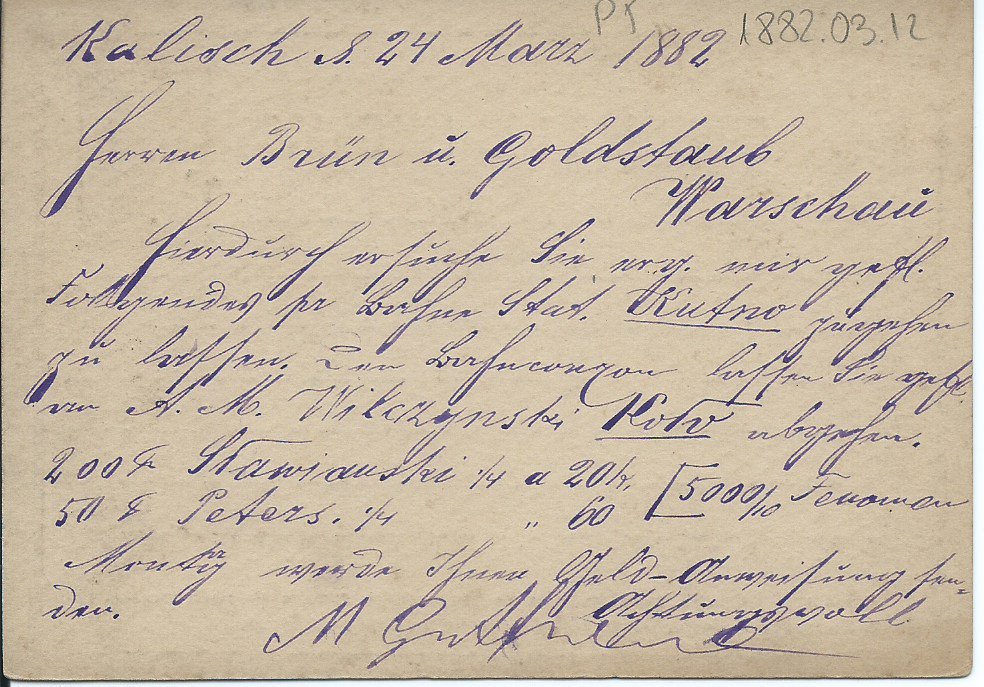 PS 1882.03.12
Kalisch d. 24 März 1882
Herren Brün u. Goldstaub
Warschau
Hierdurch ersuche Sie erg. mir gefl.
Folgendes pr Bahn Stat. Kutno zugehen
zu lassen. Den Bahncoupon lassen Sie gefl.
an A. M. Wilczynski Koło abgehen.
200 ℔ Stawianski ¼ a 20 k. [5000/10 Fenomen
50 ℔ Peters. ¼ " 60
Montag werde Ihnen Geld-Anweisung sen-
den. Achtungsvoll
M